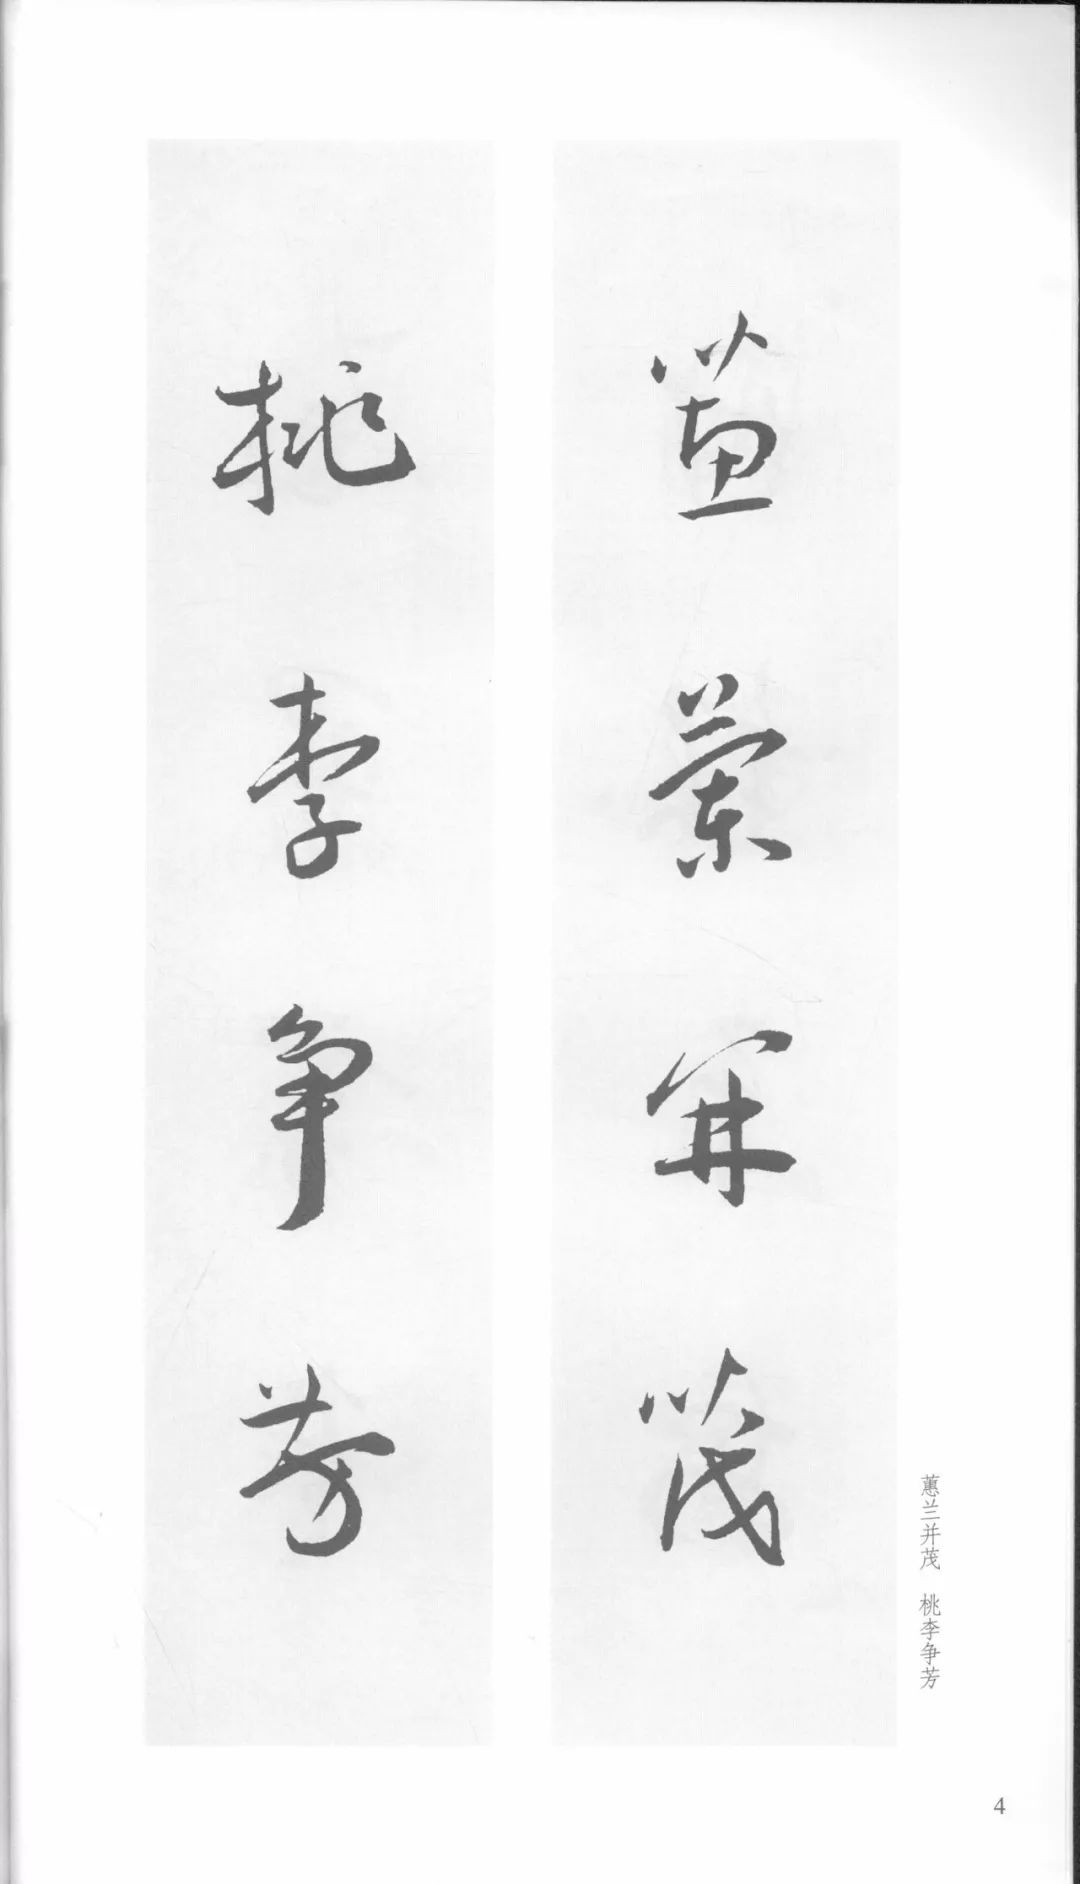 蕙兰并茂
桃李争芳
蕙兰并茂 桃李争芳
4